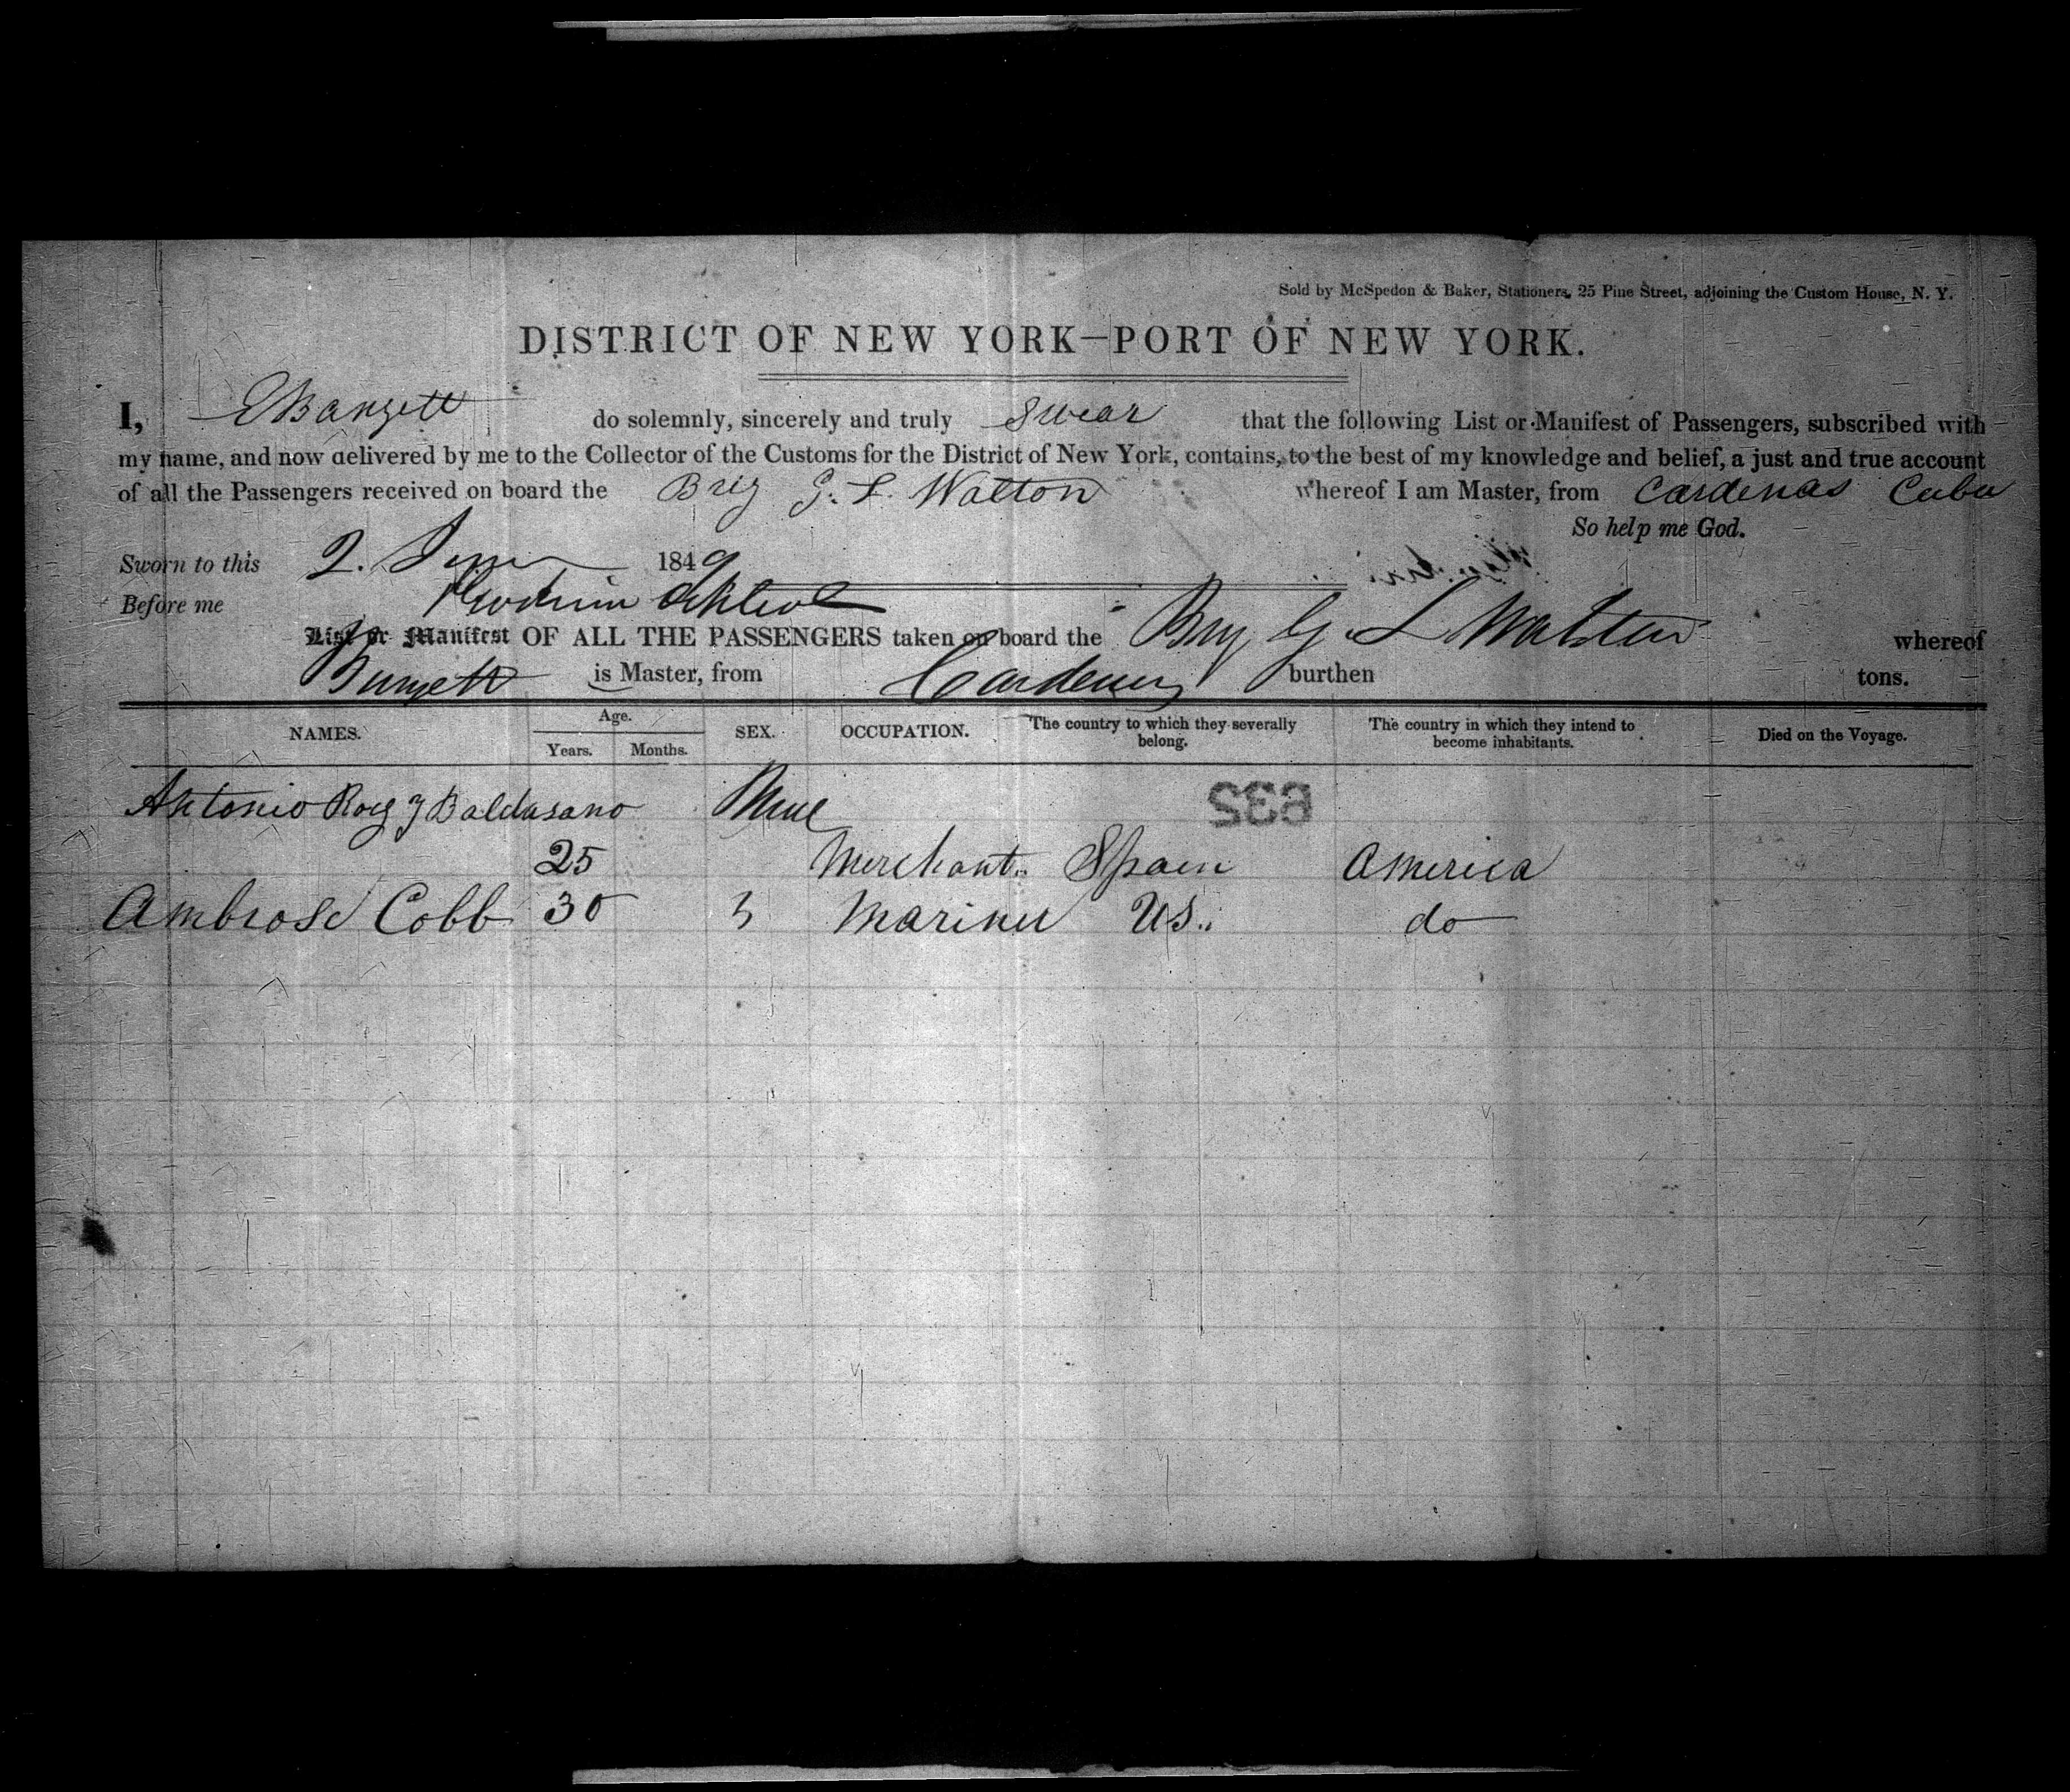 Sold by McSpedon & Baker, Stationers, 25 Pine Street, adjoining the Custom House, N. Y.
DISTRICT OF NEW YORK—PORT OF NEW YORK.
I, do solemnly, sincerely and truly swear that the following List or Manifest of Passengers, subscribed with
my name, and now delivered by me to the Collector of the Customs for the District of New York, contains, to the best of my knowledge and belief, a just and true account
of all the Passengers received on board the Brig G. L. Walton whereof I am Master, from Cardenas Cuba
So help me God.
Sworn to this 2. June 1849
Before me
List or Manifest OF ALL THE PASSENGERS taken on board the Brig G L Walton whereof
is Master, from Cardenas burthen tons.
NAMES. Age. Years. Months. SEX. OCCUPATION. The country to which they severally belong. The country in which they intend to become inhabitants. Died on the Voyage.
Antonio Roig y Baldasano Male
25 Merchant Spain America
Ambrose Cobb 30 Mariner US. do
632